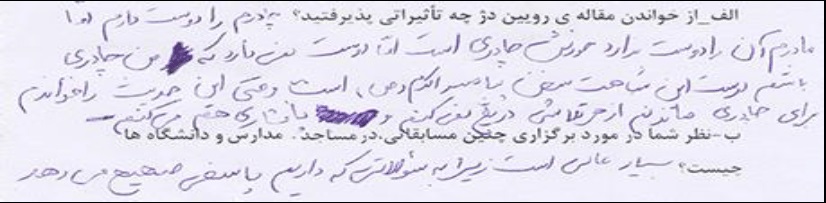 الف_از خواندن مقاله ی رویین دژ چه تأثیراتی پذیرفتید؟ چادرم را دوست دارم اما
مادرم آن را دوست ندارد خودش چادری است اما دوست ندارد که من چادری
باشم درست این شاحت سخن پیامبر اکرم (ص) است وقتی این حدیث را خواندم
برای چادری ماندن از هر تلاشی دریغ نمی کنم و پافشاری هم می کنم
ب-نظر شما در مورد برگزاری چنین مسابقاتی،در مساجد، مدارس و دانشگاه ها
چیست؟ بسیار عالی است زیرا به سؤالاتی که داریم پاسخی صحیح می دهد